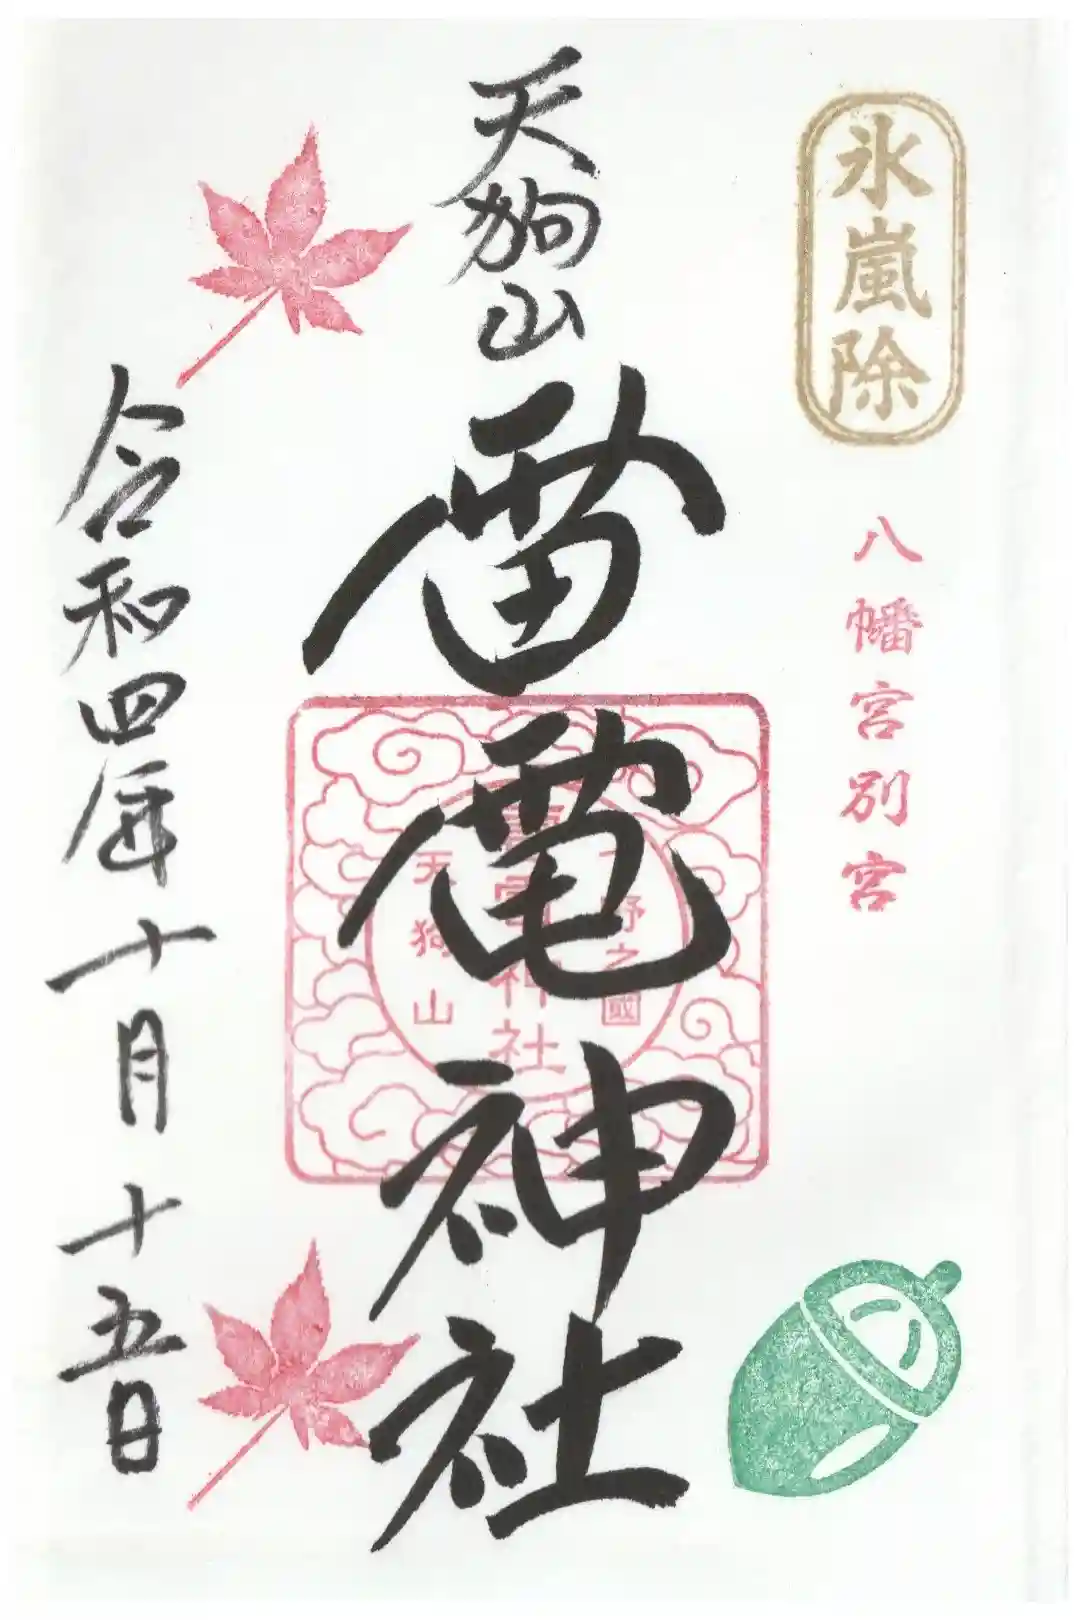 氷嵐除
八幡宮別宮
天狗山
雷電神社
下野之國
雷電神社
天狗山
令和四年十月十五日